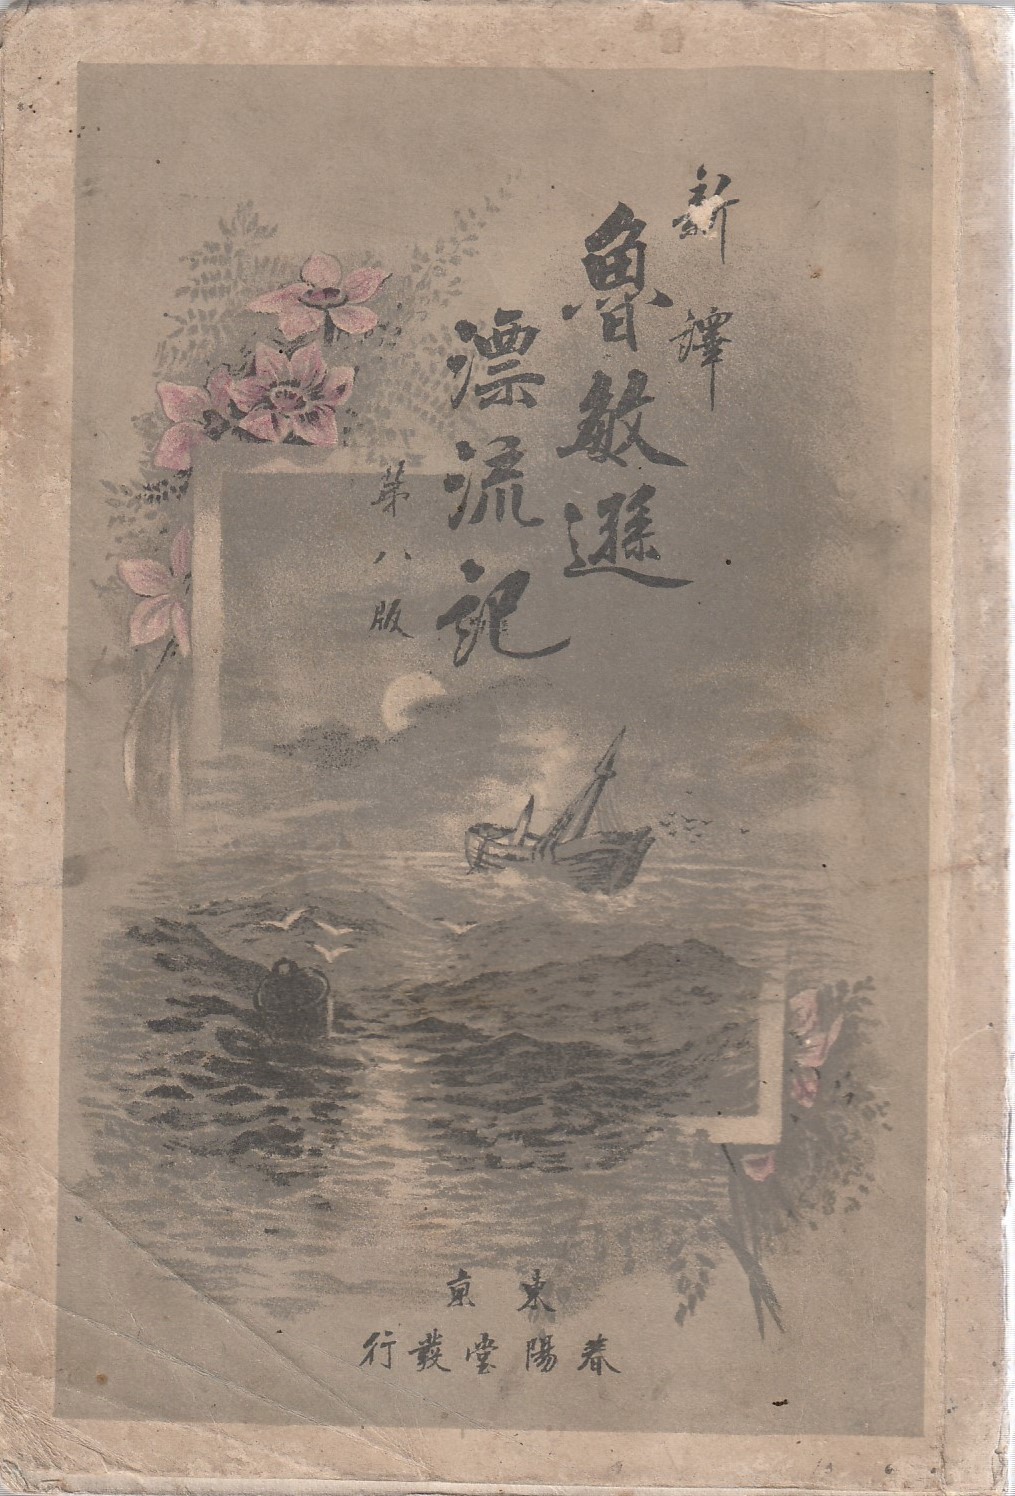 新譯
魯敏遜
漂流記
第八版
東京
春陽堂發行